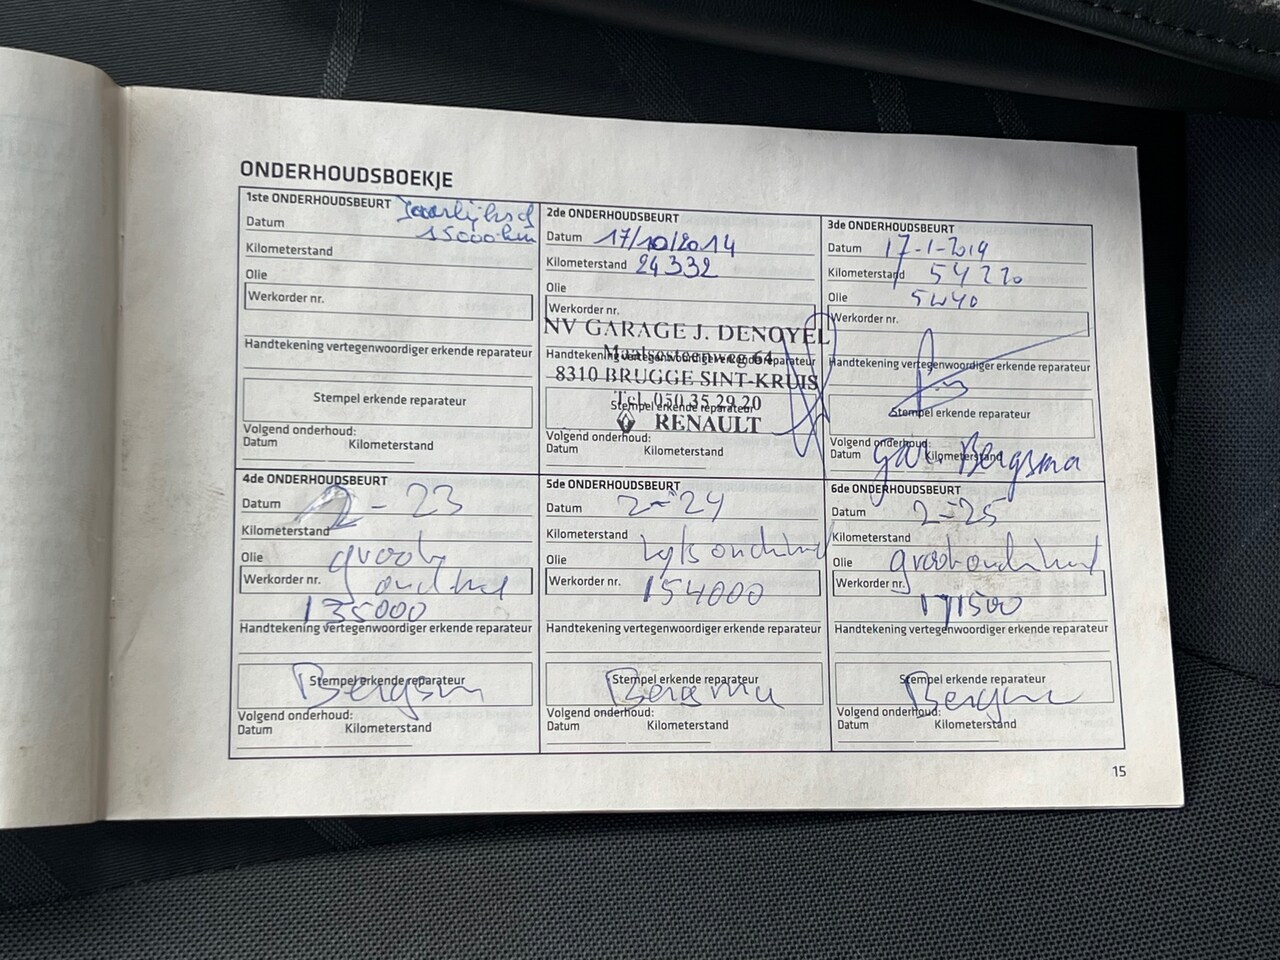 ONDERHOUDSBOEKJE
1ste ONDERHOUDSBEURT Jaarlijksd
Datum 15000 km
Kilometerstand
Olie
Werkorder nr.
Handtekening vertegenwoordiger erkende reparateur
Stempel erkende reparateur
Volgend onderhoud:
Datum Kilometerstand
2de ONDERHOUDSBEURT
Datum 17/10/2014
Kilometerstand 24332
Olie
Werkorder nr.
NV GARAGE J. DENOYEL
Handtekening vertegenwoordiger erkende reparateur
8310 BRUGGE SINT-KRUIS
Tel. 050 35 29 20
Stempel erkende reparateur
RENAULT
Volgend onderhoud:
Datum Kilometerstand
3de ONDERHOUDSBEURT
Datum 17-1-2019
Kilometerstand 54220
Olie 5W40
Werkorder nr.
Handtekening vertegenwoordiger erkende reparateur
Stempel erkende reparateur
Volgend onderhoud:
Datum Kilometerstand
gar. Bergsma
4de ONDERHOUDSBEURT
Datum 2-23
Kilometerstand
Olie groot
Werkorder nr. ondhud
135000
Handtekening vertegenwoordiger erkende reparateur
Stempel erkende reparateur
Bergsm
Volgend onderhoud:
Datum Kilometerstand
5de ONDERHOUDSBEURT
Datum 2-24
Kilometerstand
Olie
Werkorder nr. 154000
Handtekening vertegenwoordiger erkende reparateur
Stempel erkende reparateur
Bergsma
Volgend onderhoud:
Datum Kilometerstand
6de ONDERHOUDSBEURT
Datum 2-25
Kilometerstand
Olie groot ondhud
Werkorder nr.
171500
Handtekening vertegenwoordiger erkende reparateur
Stempel erkende reparateur
Bergsma
Volgend onderhoud:
Datum Kilometerstand
15